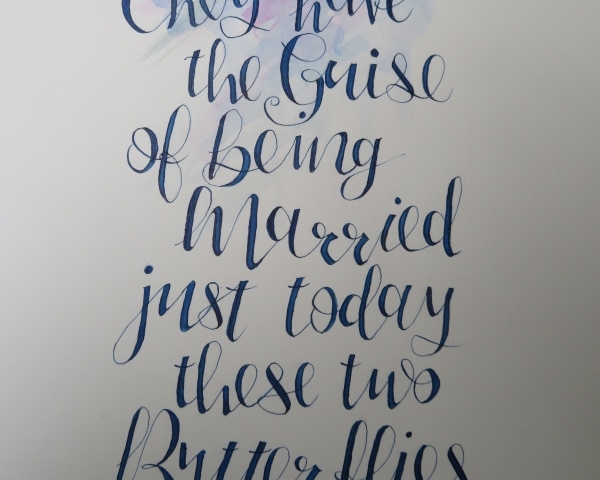 They have
the Guise
of being
Married
just today
these two
Butterflies